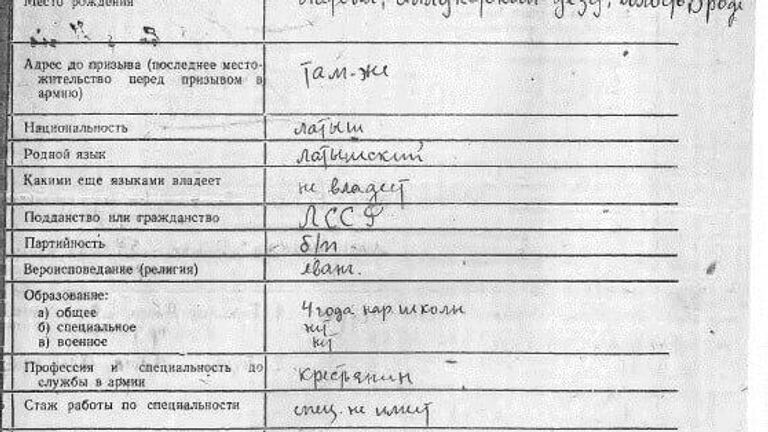 Место рождения
Адрес до призыва (последнее место-
жительство перед призывом в
армию)
Там-же
Национальность
латыш
Родной язык
латышский
Какими еще языками владеет
не владеет
Подданство или гражданство
ЛССР
Партийность
б/п
Вероисповедание (религия)
еванг.
Образование:
а) общее
4 года нар. школы
б) специальное
нет
в) военное
нет
Профессия и специальность до
службы в армии
крестьянин
Стаж работы по специальности
спец. не имеет